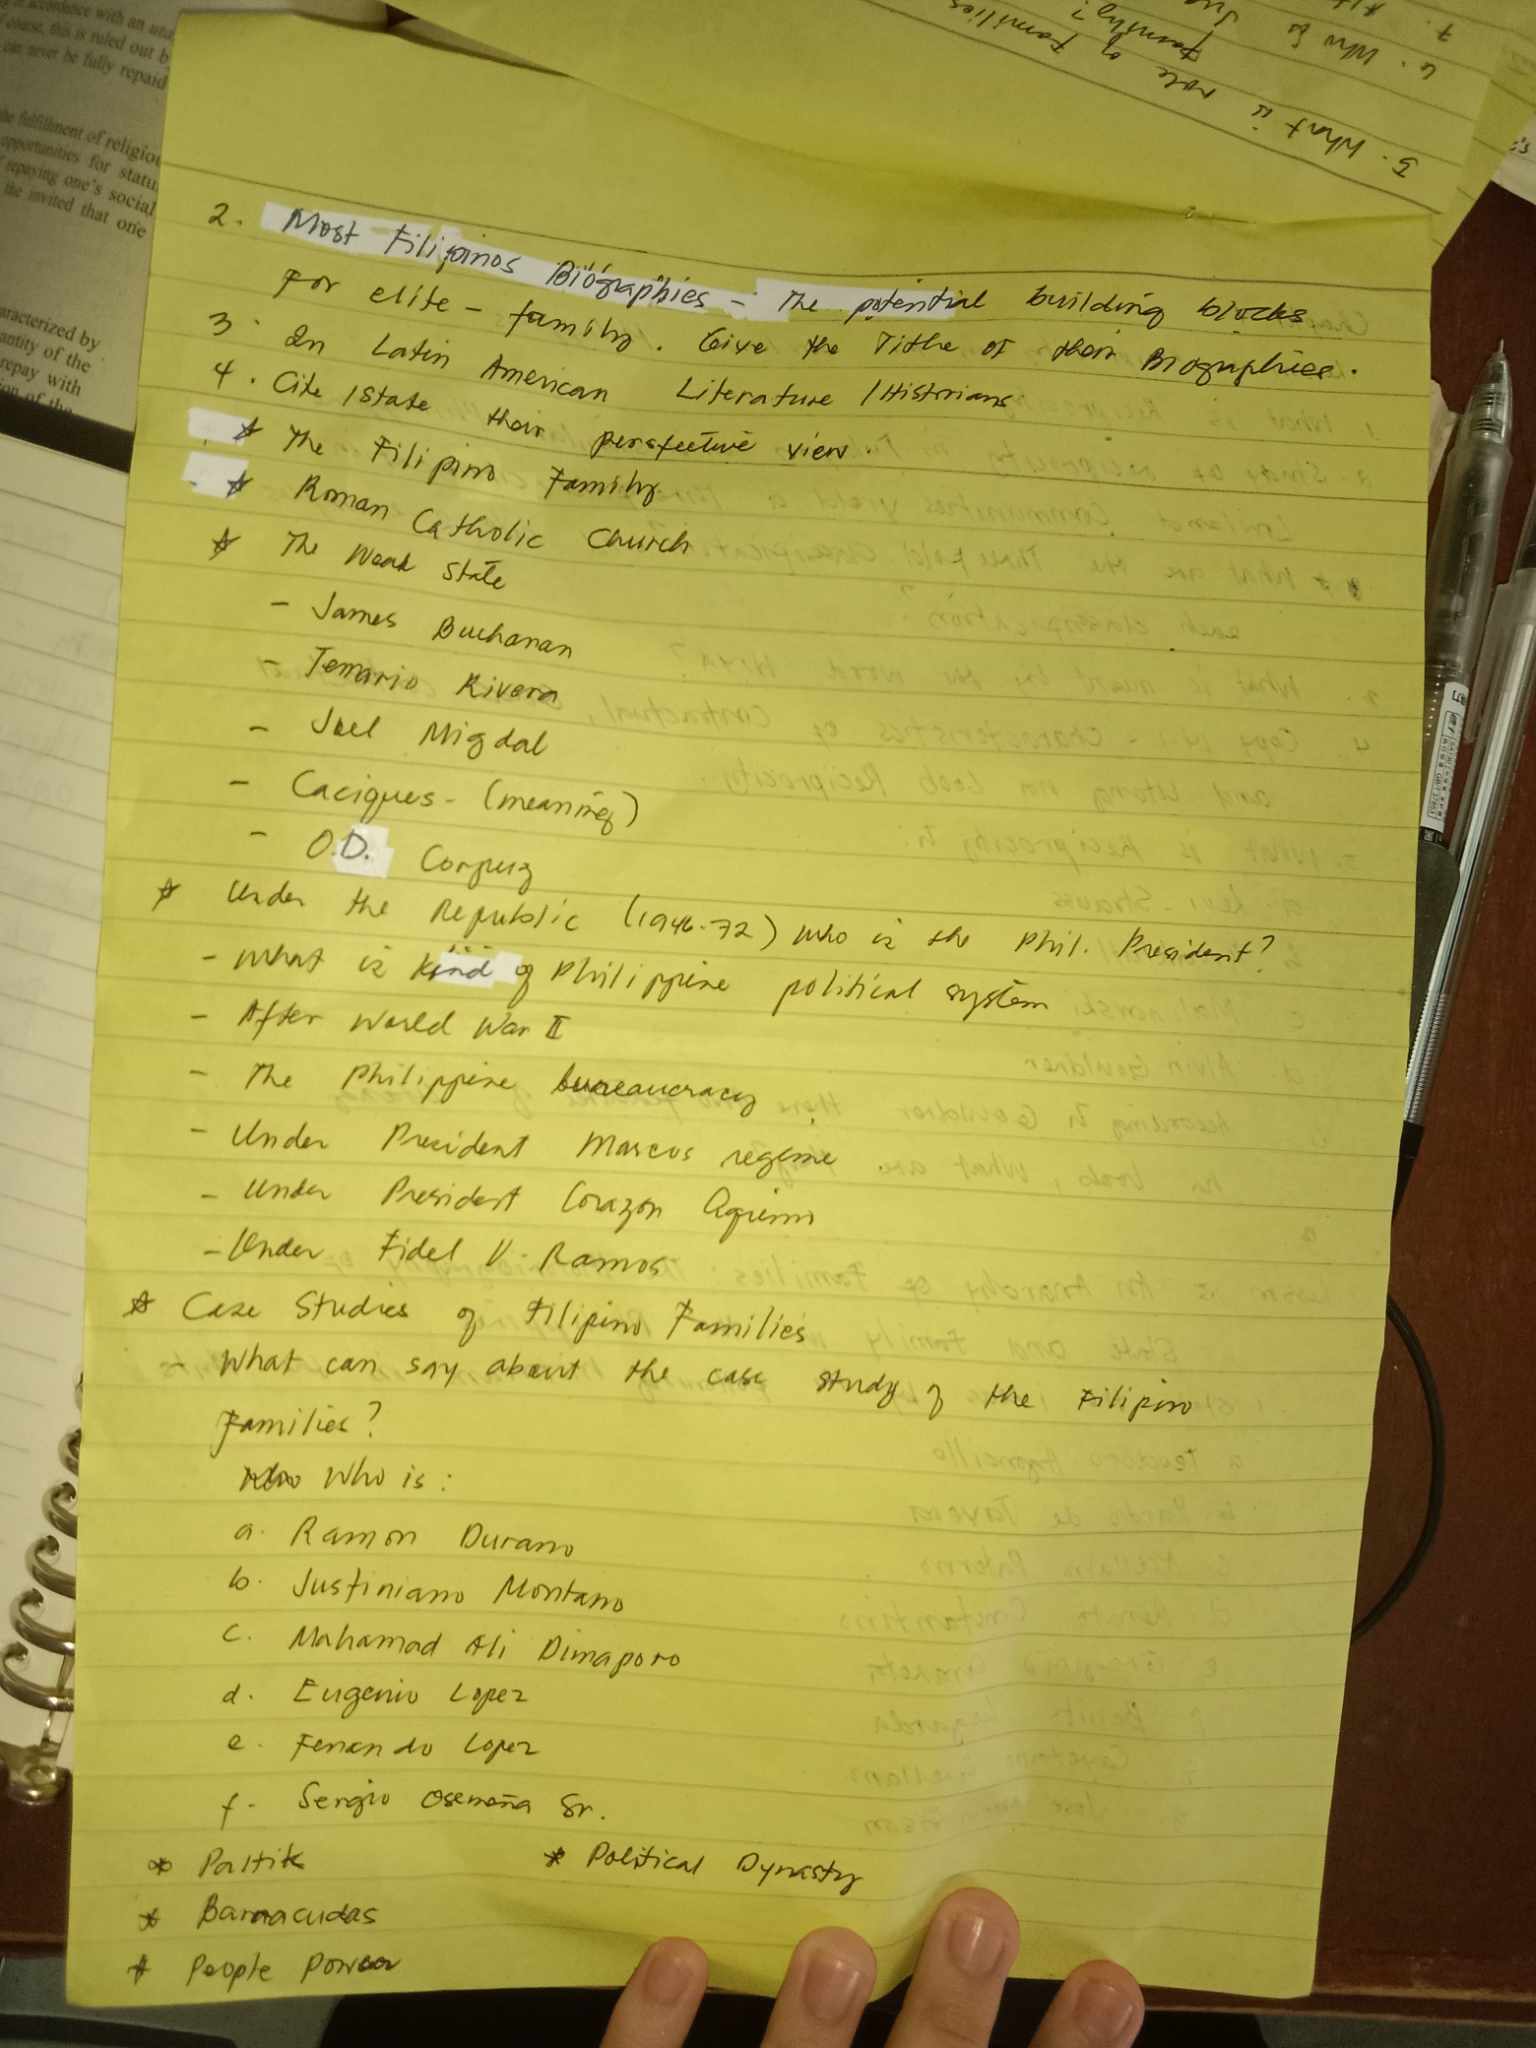 in accordance with an
course, this is ruled out b
can never be fully repaid
he fulfillment of religiou
opportunities for statu
repaying one's social
the invited that one
aracterized by
antity of the
repay with
on of the
5. What is role of families
family?
6. Who is
7.
2. Most Filipinos Biographies - The potential building blocks
For elite - family. Give the Tithe of their Biographies.
3. In Latin American Literature / Historians
4. Cite / State their perspective view.
☆ The Filipino Family
☆ Roman Catholic Church
☆ The Weak State
- James Buchanan
- Temario Rivera
- Joel Migdal
- Caciques - (meaning)
- O.D. Corpuz
☆ Under the Republic (1946-72) who is the Phil. President?
- What is kind of Philippine political system
- After World War II
- The Philippine bureaucracy
- Under President Marcos regime
- Under President Corazon Aquino
- Under Fidel V. Ramos
☆ Case Studies of Filipino Families
- What can say about the case study of the Filipino
Families?
Who is :
a. Ramon Durano
b. Justiniano Montano
c. Mahamad Ali Dimaporo
d. Eugenio Lopez
e. Fenando Lopez
f. Sergio Osemeña Sr.
* Paltik * Political Dynasty
* Barracudas
* People Power